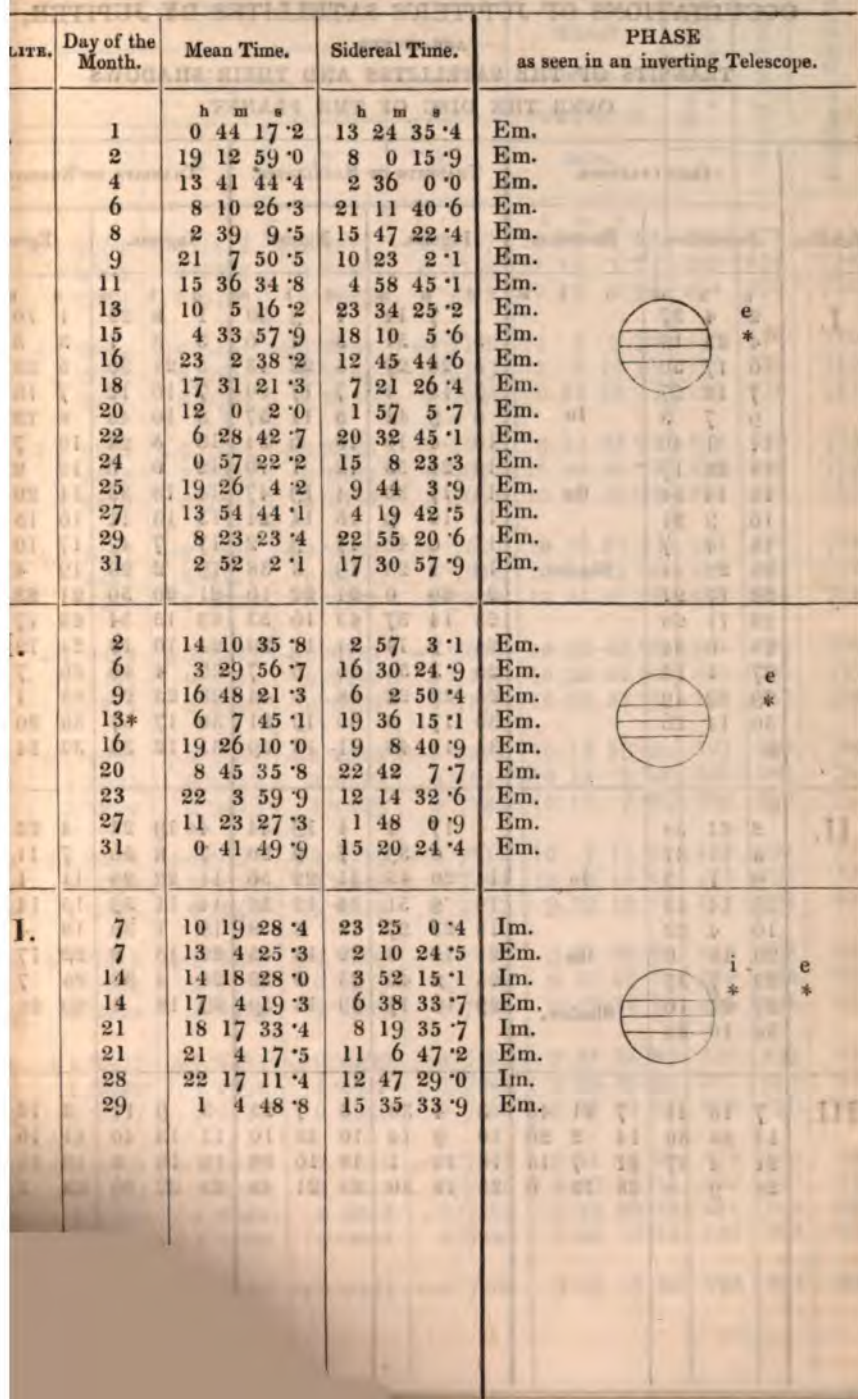 LITE. Day of the Month. Mean Time. Sidereal Time. PHASE as seen in an inverting Telescope.
h m s h m s
1 0 44 17·2 13 24 35·4 Em.
2 19 12 59·0 8 0 15·9 Em.
4 13 41 44·4 2 36 0·0 Em.
6 8 10 26·3 21 11 40·6 Em.
8 2 39 9·5 15 47 22·4 Em.
9 21 7 50·5 10 23 2·1 Em.
11 15 36 34·8 4 58 45·1 Em.
13 10 5 16·2 23 34 25·2 Em. e
15 4 33 57·9 18 10 5·6 Em. *
16 23 2 38·2 12 45 44·6 Em.
18 17 31 21·3 7 21 26·4 Em.
20 12 0 2·0 1 57 5·7 Em.
22 6 28 42·7 20 32 45·1 Em.
24 0 57 22·2 15 8 23·3 Em.
25 19 26 4·2 9 44 3·9 Em.
27 13 54 44·1 4 19 42·5 Em.
29 8 23 23·4 22 55 20·6 Em.
31 2 52 2·1 17 30 57·9 Em.
. 2 14 10 35·8 2 57 3·1 Em.
6 3 29 56·7 16 30 24·9 Em. e
9 16 48 21·3 6 2 50·4 Em. *
13* 6 7 45·1 19 36 15·1 Em.
16 19 26 10·0 9 8 40·9 Em.
20 8 45 35·8 22 42 7·7 Em.
23 22 3 59·9 12 14 32·6 Em.
27 11 23 27·3 1 48 0·9 Em.
31 0 41 49·9 15 20 24·4 Em.
I. 7 10 19 28·4 23 25 0·4 Im.
7 13 4 25·3 2 10 24·5 Em.
14 14 18 28·0 3 52 15·1 Im. i e
14 17 4 19·3 6 38 33·7 Em. * *
21 18 17 33·4 8 19 35·7 Im.
21 21 4 17·5 11 6 47·2 Em.
28 22 17 11·4 12 47 29·0 Im.
29 1 4 48·8 15 35 33·9 Em.